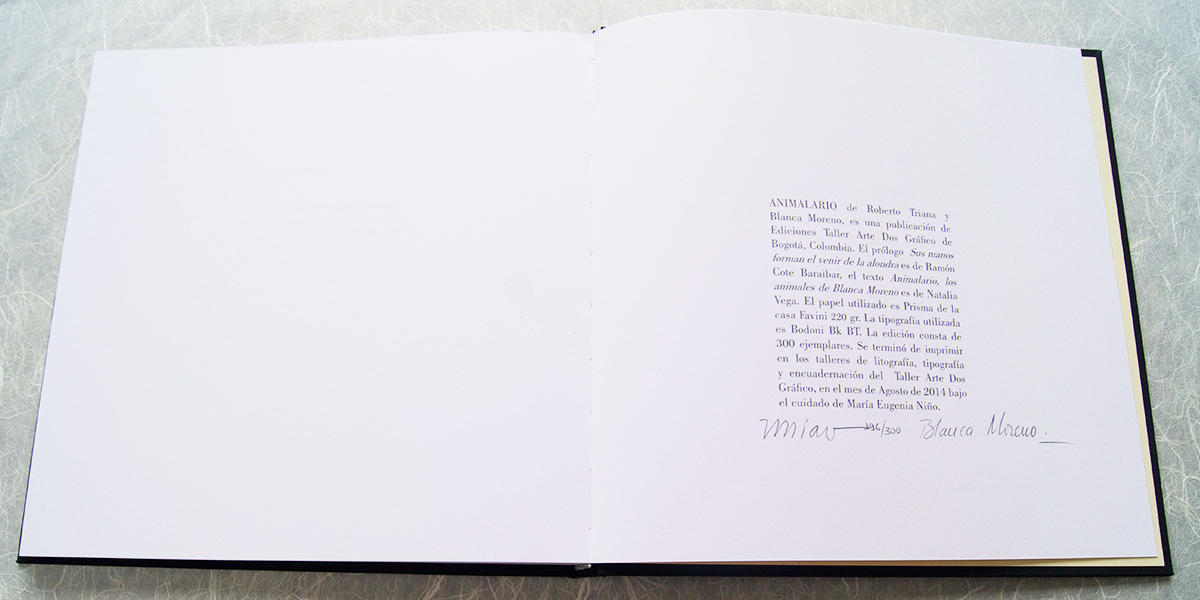 ANIMALARIO de Roberto Triana y
Blanca Moreno, es una publicación de
Ediciones Taller Arte Dos Gráfico de
Bogotá, Colombia. El prólogo Sus manos
forman el venir de la alondra es de Ramón
Cote Baraibar, el texto Animalario, los
animales de Blanca Moreno es de Natalia
Vega. El papel utilizado es Prisma de la
casa Favini 220 gr. La tipografía utilizada
es Bodoni Bk BT. La edición consta de
300 ejemplares. Se terminó de imprimir
en los talleres de litografía, tipografía
y encuadernación del Taller Arte Dos
Gráfico, en el mes de Agosto de 2014 bajo
el cuidado de María Eugenia Niño.
296/300 Blanca Moreno.